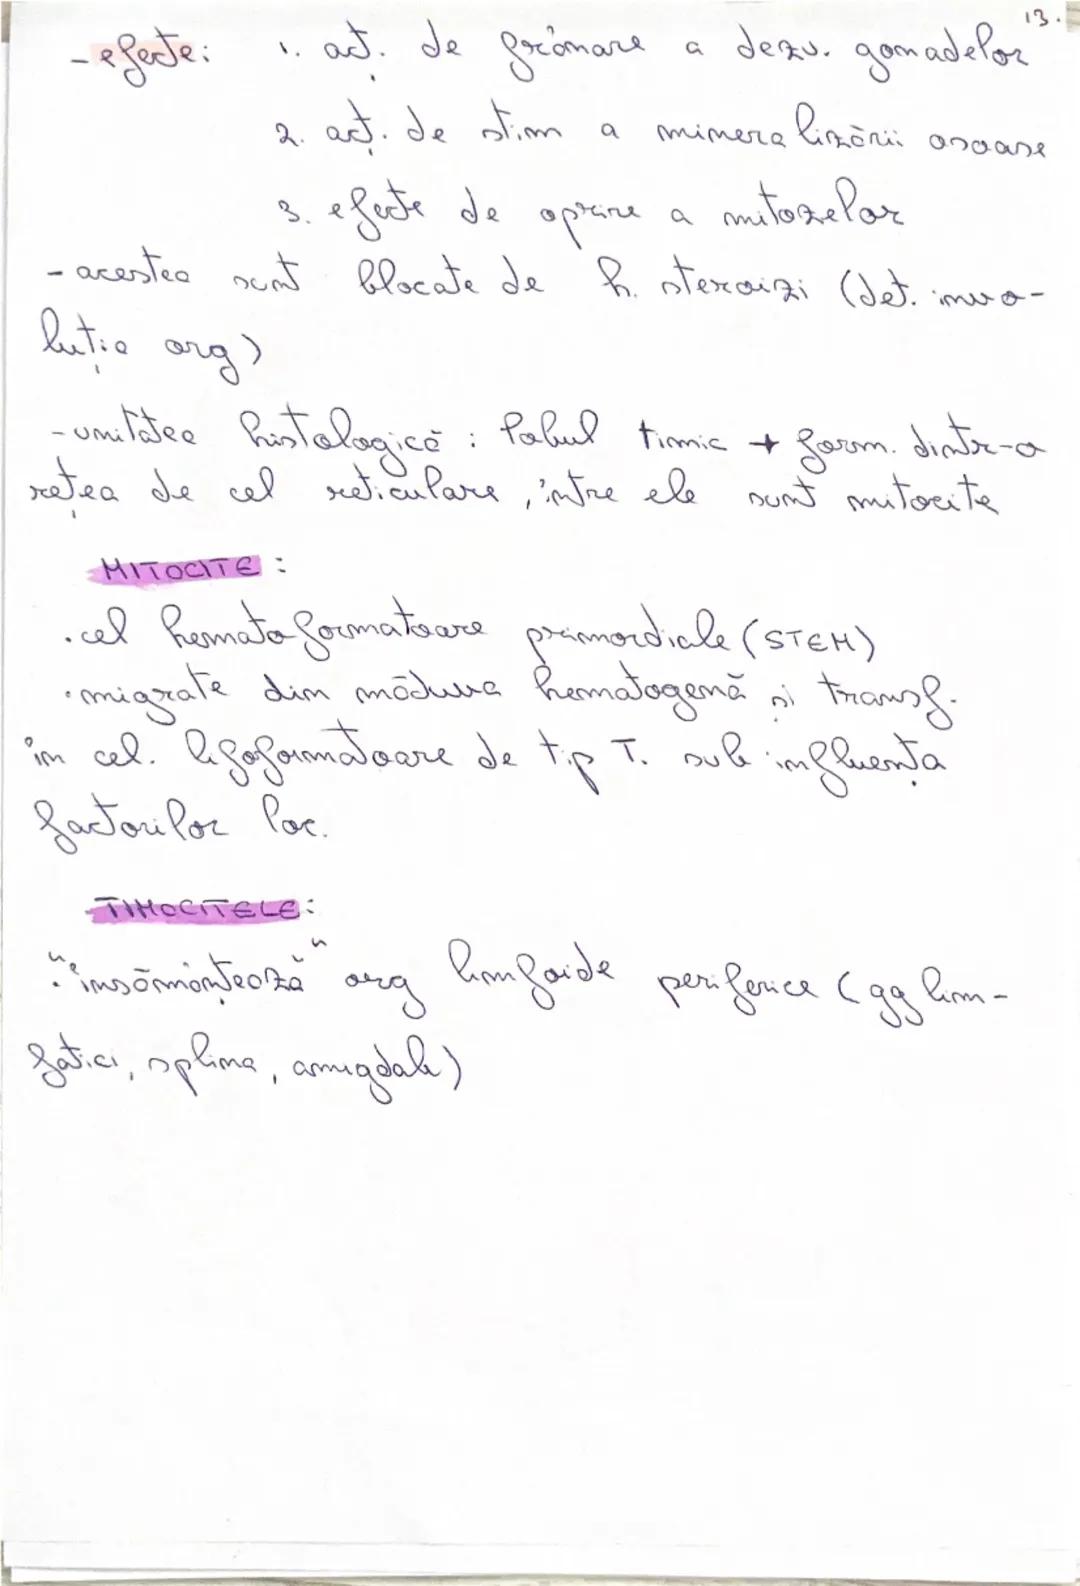 13.
- efecte: 1. acț. de frânare a dezv. gonadelor
2. acț. de stim a mineralizării osoase
3. efecte de oprire a mitozelor
- acestea sunt blocate de h. steroizi (det. invo-
luția org)
- unitatea histologică : lobul timic → form. dintr-o
rețea de cel reticulare, între ele sunt mitocite
MITOCITE :
· cel hematoformatoare primordiale (STEM)
· migrate din măduva hematogenă și transf.
în cel. lifoformatoare de tip T. sub influența
factorilor loc.
TIMOCITELE:
· "însămânțează" org limfoide periferice (gg lim-
fatici, splina, amigdale)